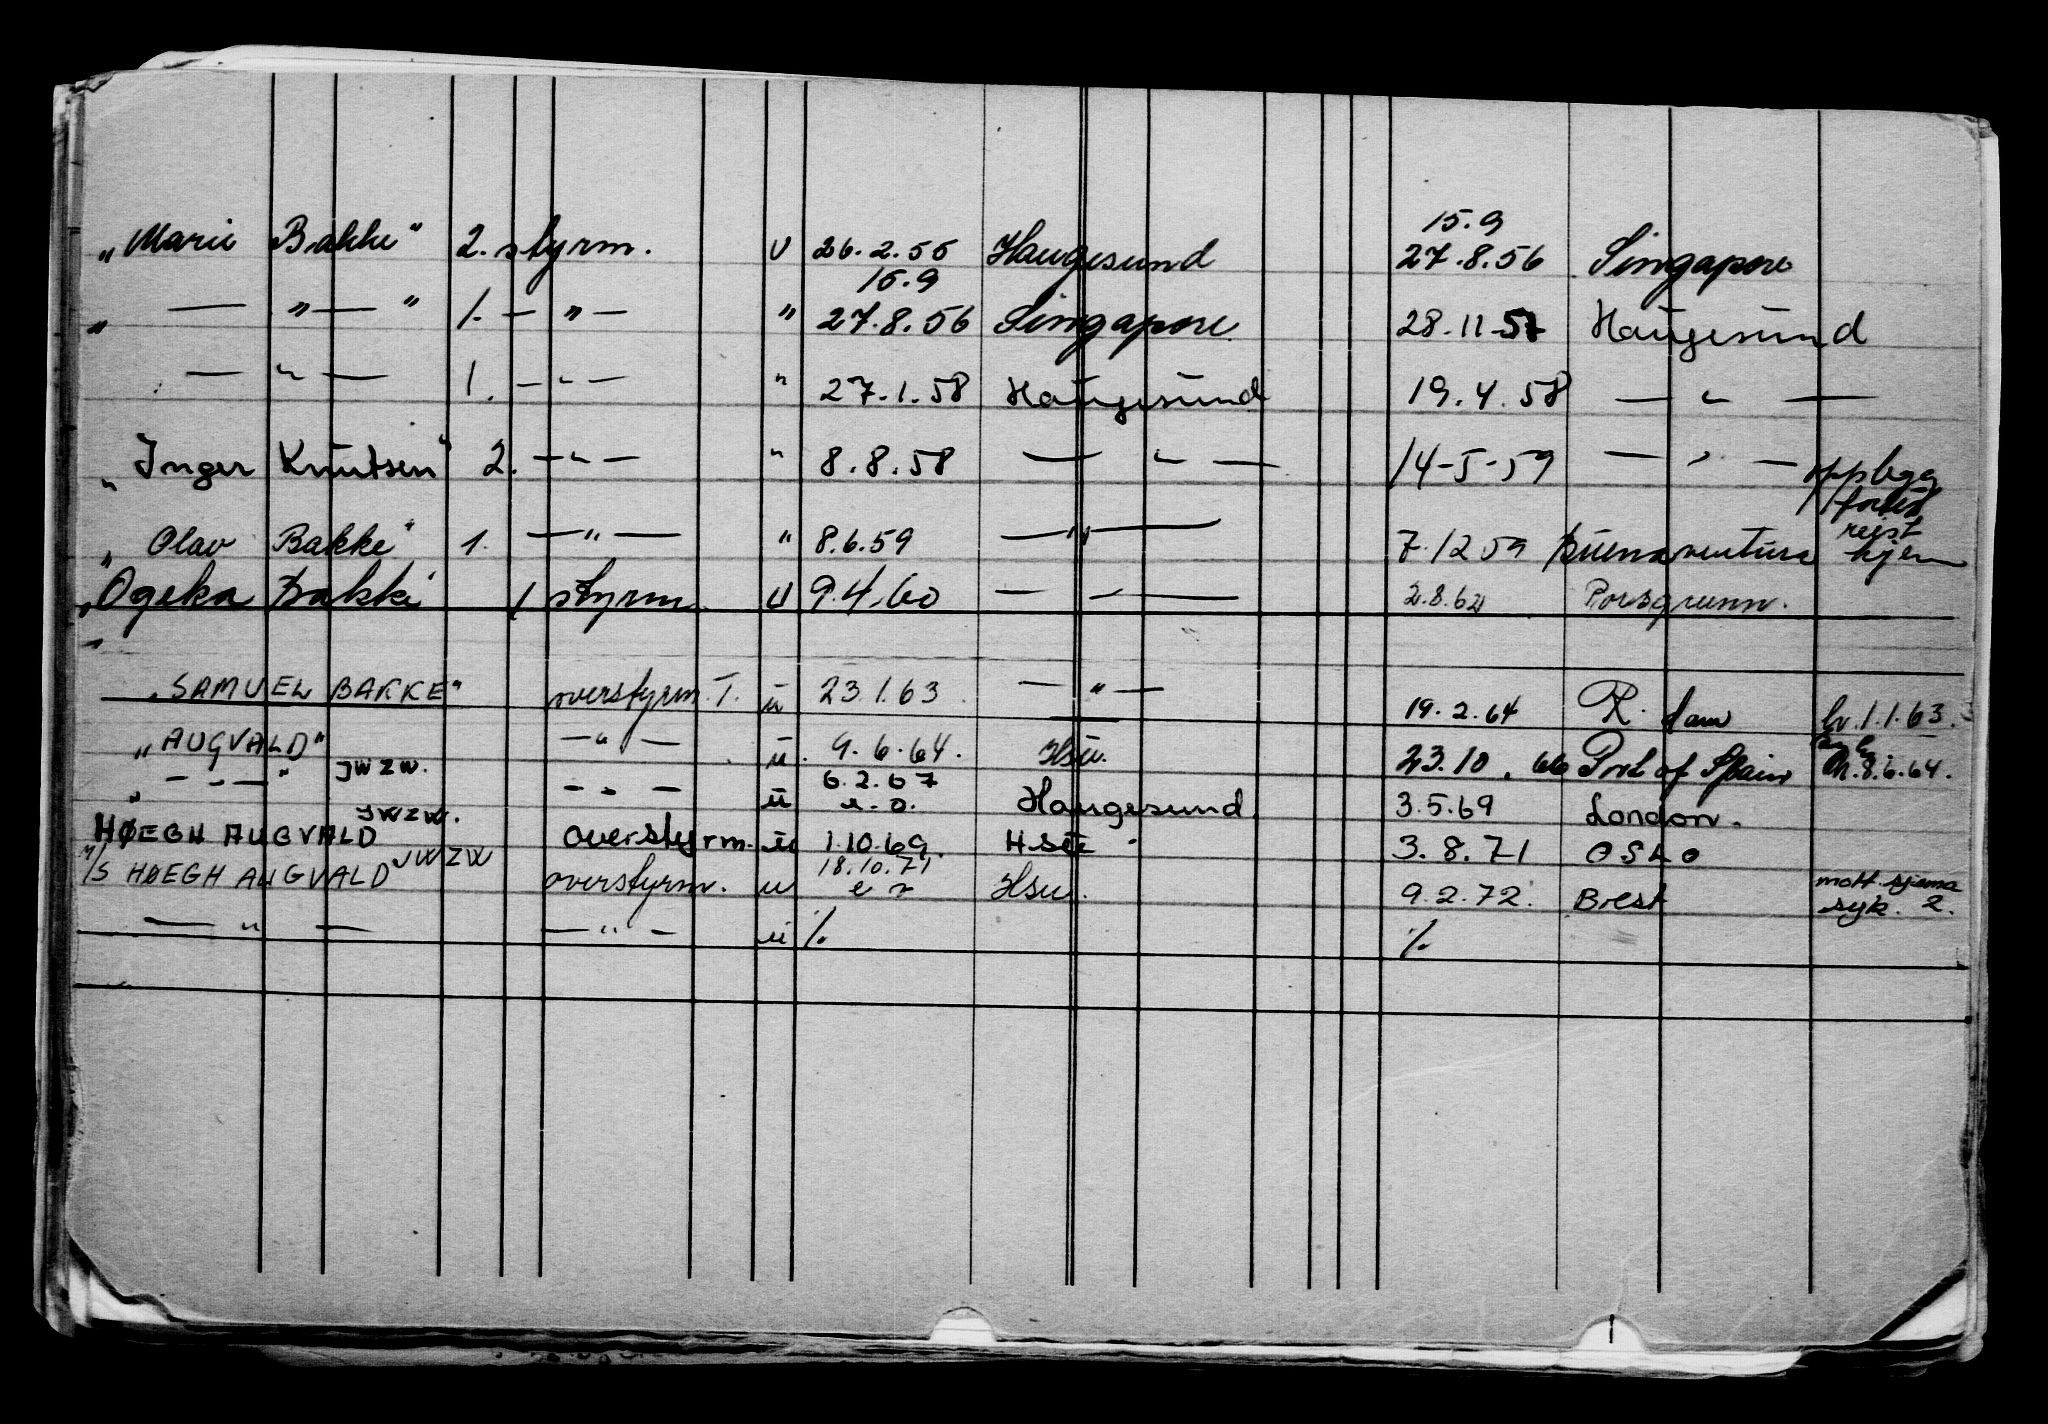 15.9
"Marie Bakke" 2. styrm. u 26.2.55 Haugesund 27.8.56 Singapore
15.9
" — " — " 1. — " — " 27.8.56 Singapore 28.11.57 Haugesund
— " — 1. — " — " 27.1.58 Haugesund 19.4.58 — " —
"Inger Knutsen" 2. — " — " 8.8.58 — " — 14-5-59 — " — oppbygg
"Olav Bakke" 1. — " — " 8.6.59 — " — 7.12 59 Buenaventura reist hjem
"Ogeka Bakke 1 styrm. u 9.4.60 — " — 2.8.62 Porsgrunn.
"SAMUEL BAKKE" overstyrm. T. u 23.1.63 — " — 19.2.64 R. dam hv. 1.1.63.
"AUGVALD" — " — u. 9.6.64. Hsu. 23.10.66 Port of Spain 8.6.64.
" — " — " JWZW. — " — u 6.2.67 e.o. Haugesund 3.5.69 London.
JWZW.
HØEGH AUGVALD overstyrm. u 1.10.69 Hsu. 3.8.71 OSLO
M/S HØEGH AUGVALD JWZW overstyrm. u 18.10.71 Hsu. 9.2.72. Brest mott. sjema syk. 2.
— " — — " — u % %